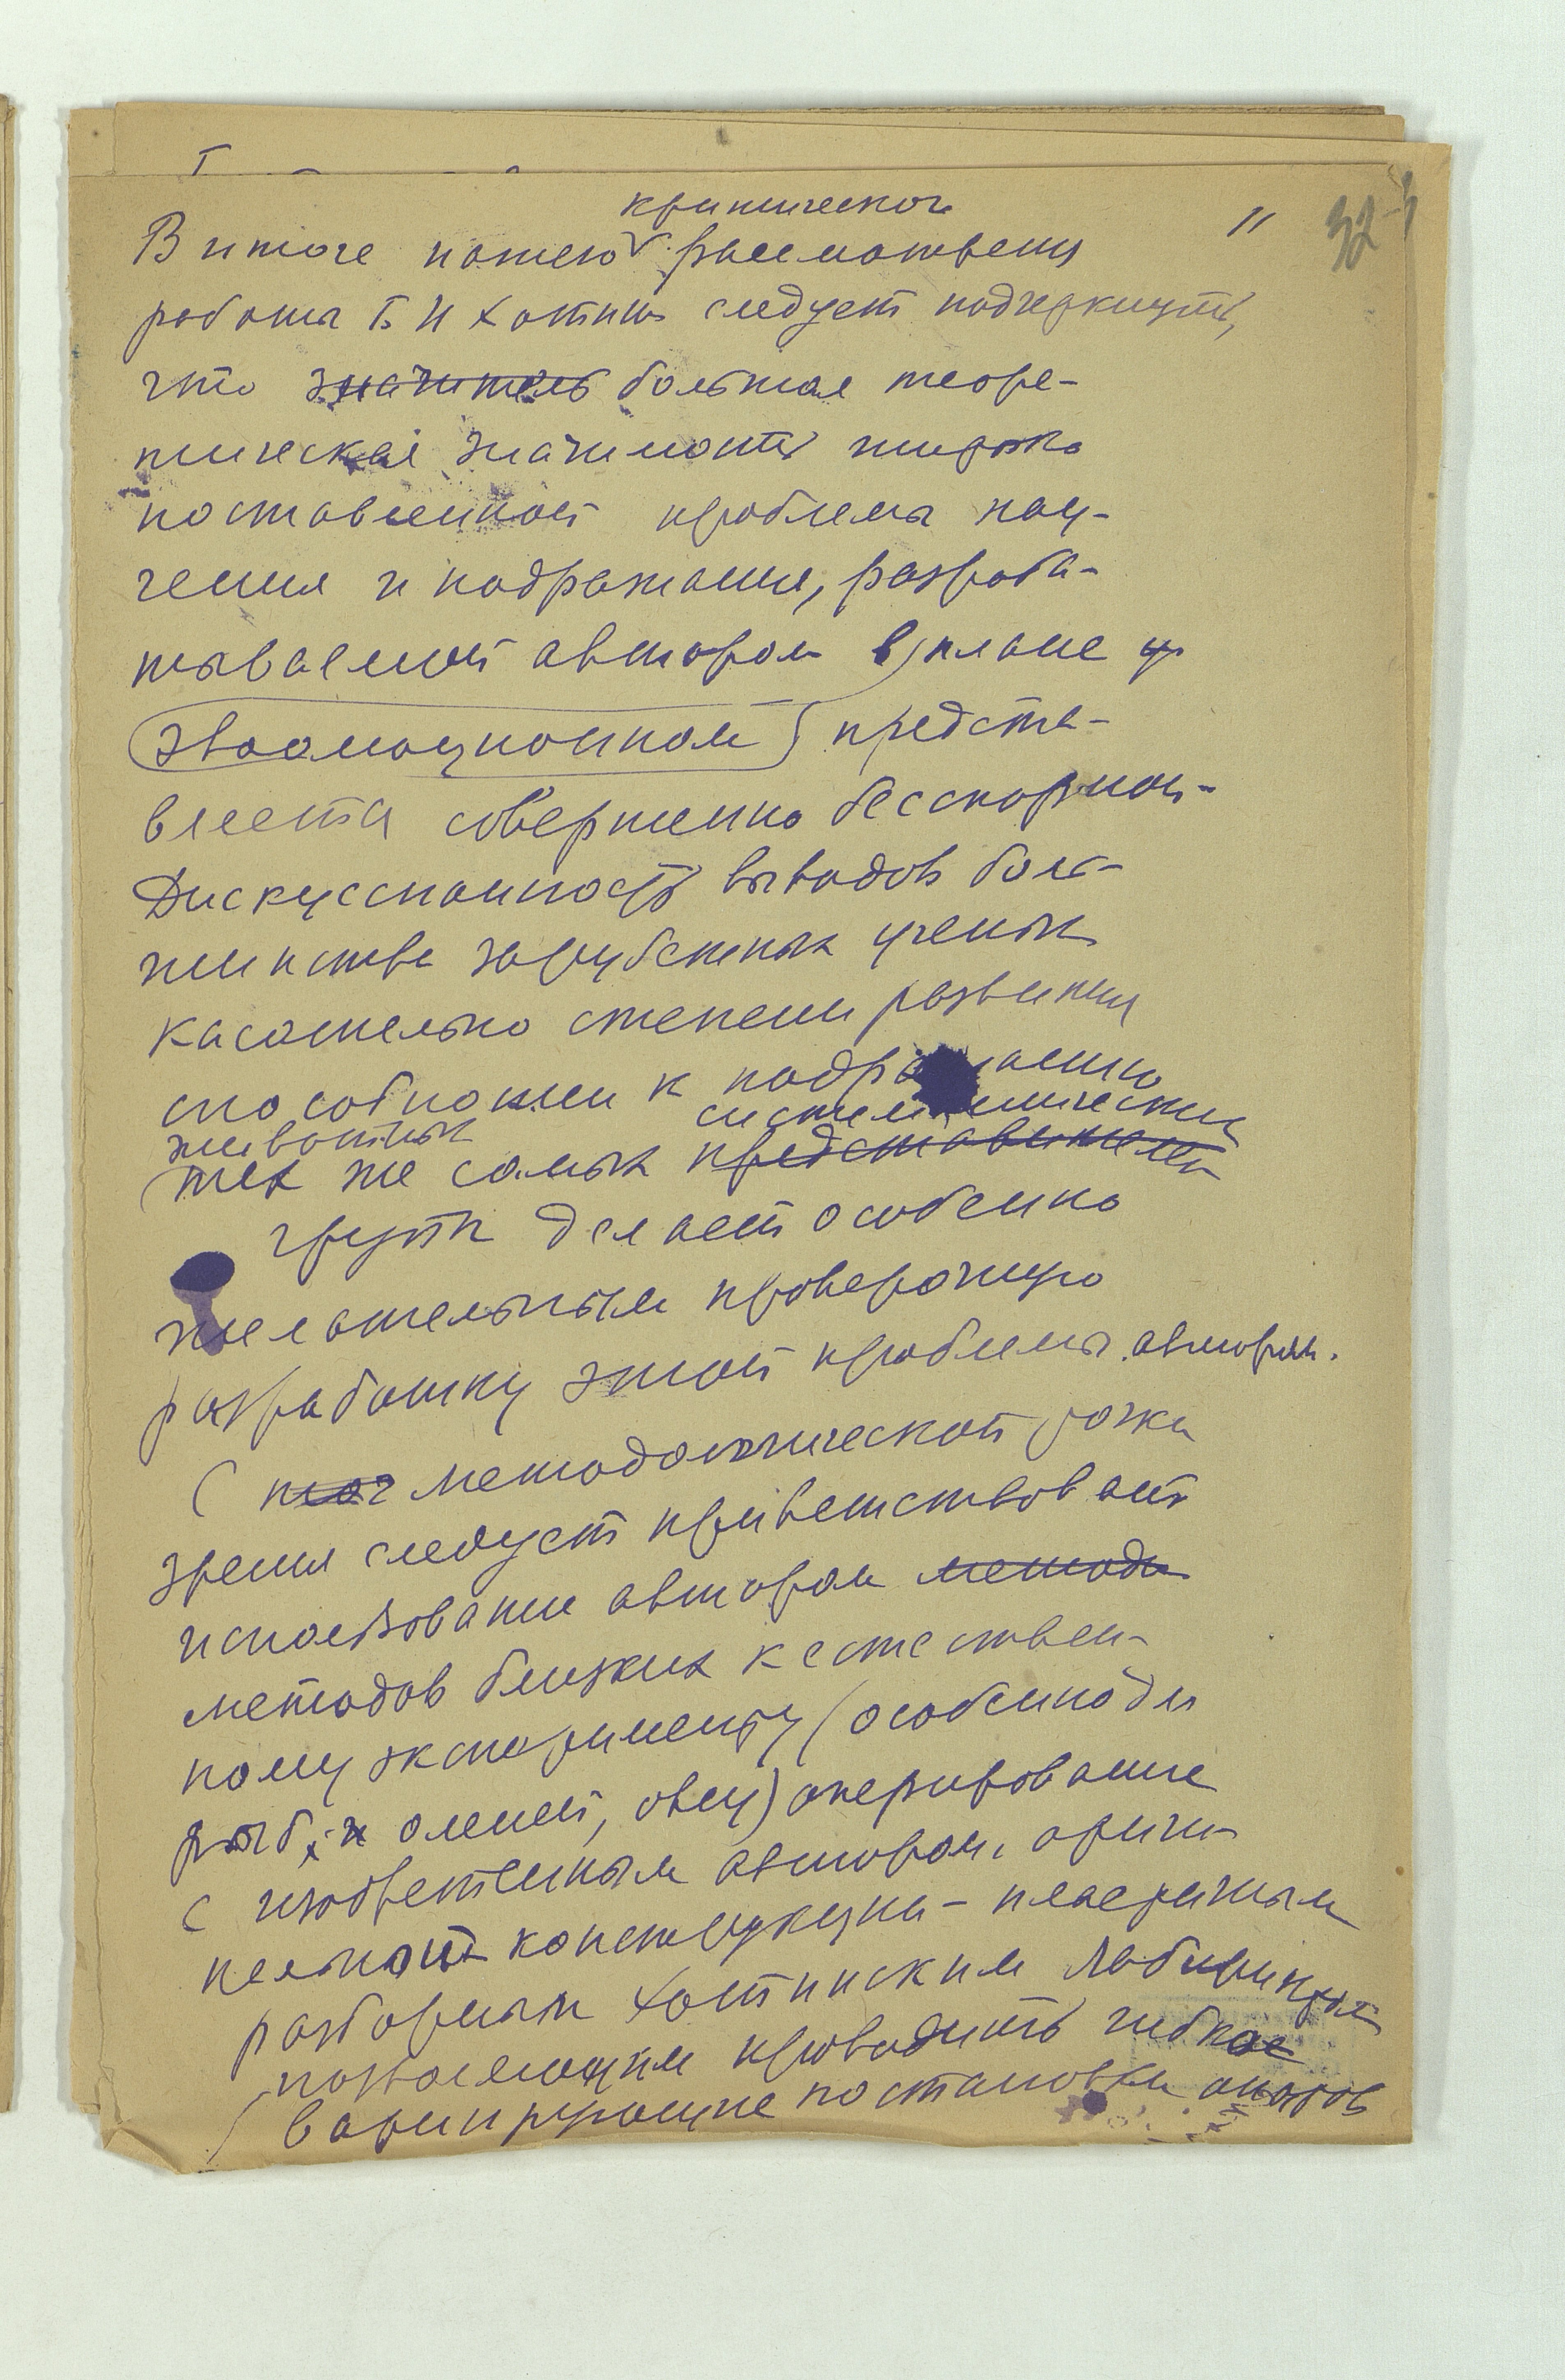 критического
11
32
В итоге нашего рассмотрения
работы Б И Хотина следует подчеркнуть,
что значитель большая теоре-
тическая значимость широко
поставленной проблемы нау-
чения и подражания, разраба-
тываемой автором в плане
эволюционном предста-
вляется совершенно бесспорной.
Дискуссионность выводов боль-
шинства зарубежных ученых
касательно степени развития
способности к подражанию
животных систематических
тех же самых представителей
групп делает особенно
желательным проверочную
разработку этой проблемы автором.
С точ методологической точки
зрения следует приветствовать
использование автором метода
методов близких к естествен-
ному эксперименту (особенно для
рыб, и оленей, овец) оперирование
с изобретенным автором, ориги-
нальной конструкции
разборным Хотинским лабиринтом
позволяющим проводить гибкое
варьирующие постановки опытов